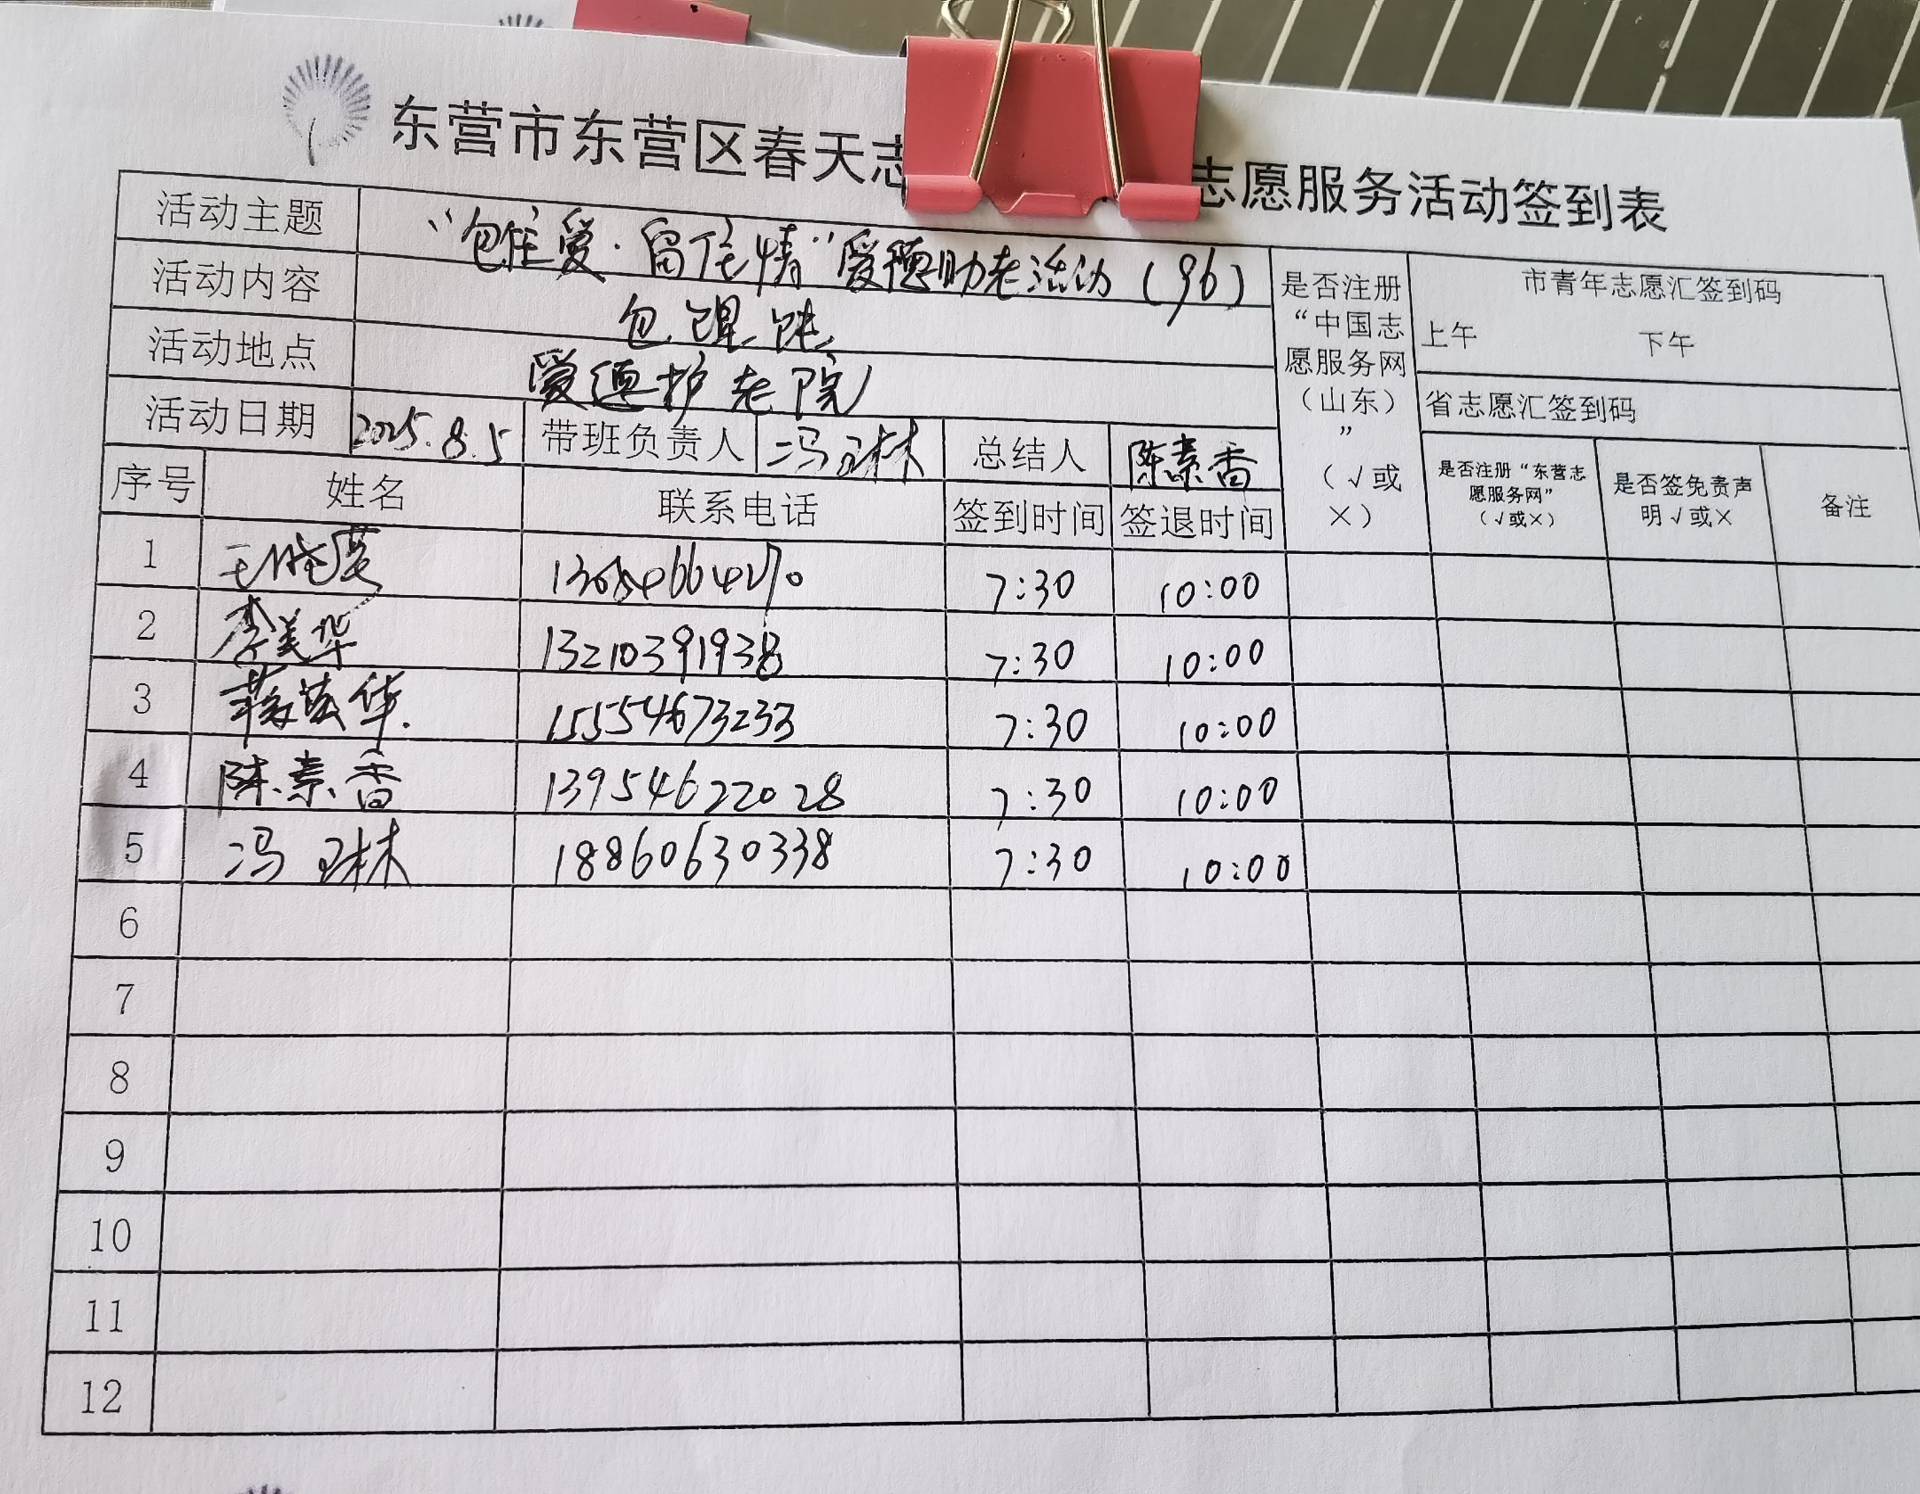 东营市东营区春天志 志愿服务活动签到表
活动主题 “包住爱·留住情”爱德助老活动（96）
活动内容 包馄饨
活动地点 爱德护老院
活动日期 2025.8.5 带班负责人 冯玉林 总结人 陈素香
是否注册“中国志愿服务网（山东）”（√或×）
市青年志愿汇签到码
上午 下午
省志愿汇签到码
序号 姓名 联系电话 签到时间 签退时间 是否注册“东营志愿服务网”（√或×） 是否签免责声明√或× 备注
1 王晓英 7:30 10:00
2 李美华 13210391938 7:30 10:00
3 华 15554673233 7:30 10:00
4 陈素香 13954622028 7:30 10:00
5 冯玉林 18860630338 7:30 10:00
6
7
8
9
10
11
12